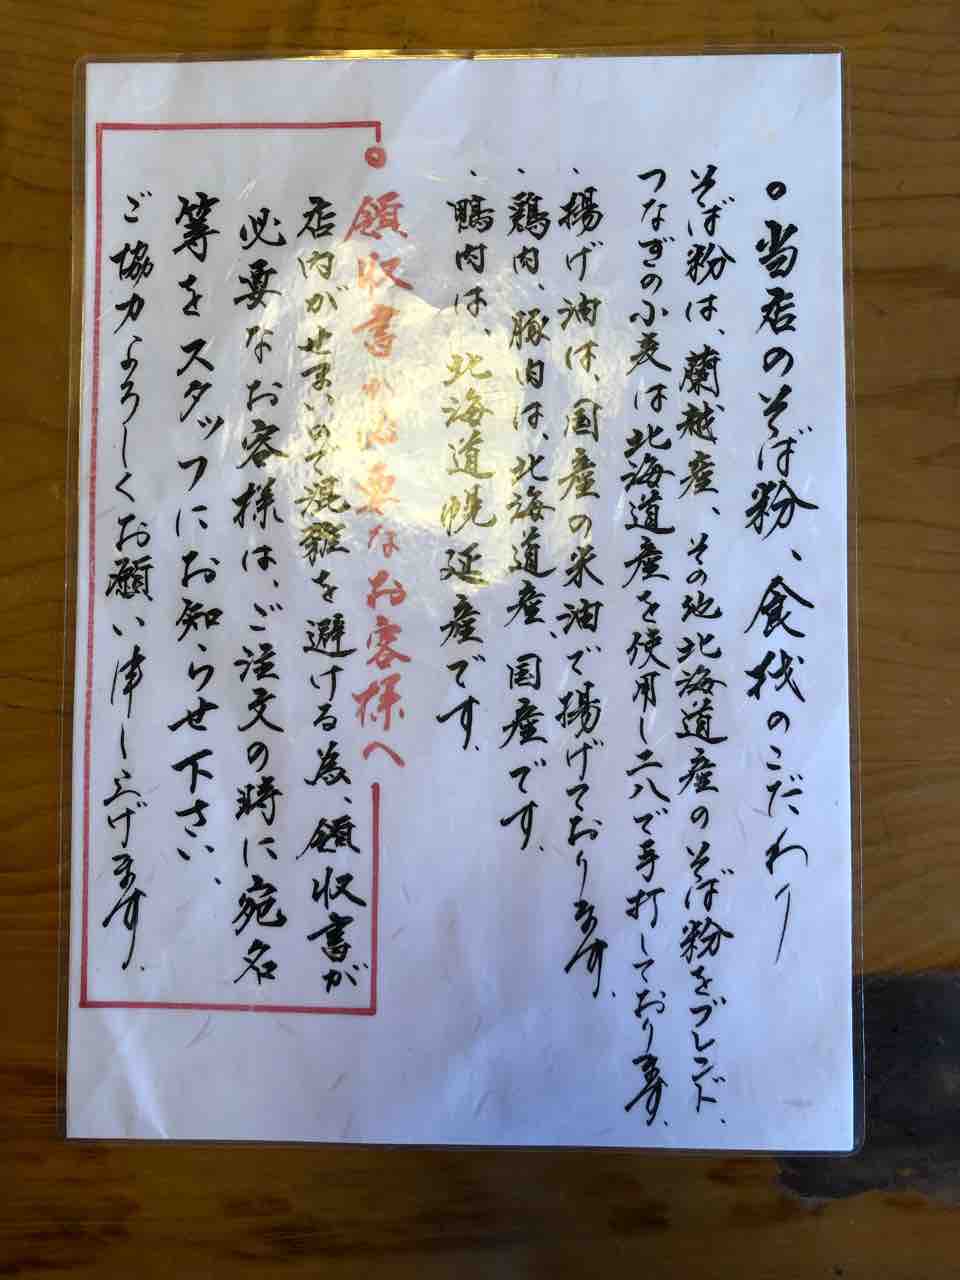 。当店のそば粉、食材のこだわり
そば粉は、蘭越産、その他北海道産のそば粉をブレンド、
つなぎの小麦は北海道産を使用し二八で手打しております。
、揚げ油は、国産の米油で揚げております。
、鶏肉、豚肉は、北海道産、国産です。
、鴨肉は、北海道幌延産です。
。領収書が必要なお客様へ
店内がせまいので混雑を避ける為、領収書が
必要なお客様は、ご注文の時に宛名
等をスタッフにお知らせ下さい、
ご協力よろしくお願い申し上げます。